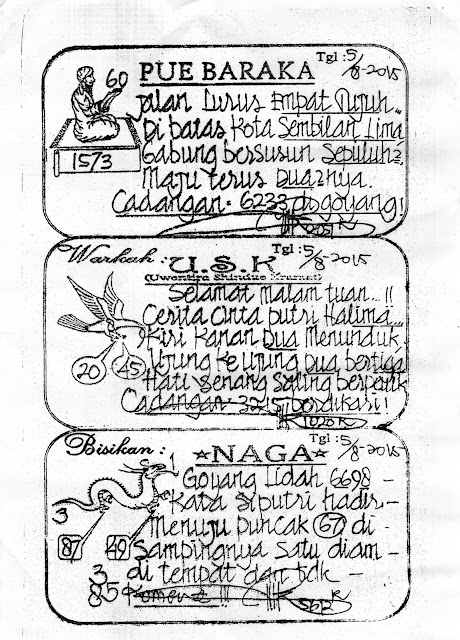 Tgl : 5/8-2015
PUE BARAKA
60
1573
Jalan Lurus Empat Tujuh...
Di batas Kota Sembilan Lima
Gabung bersusun Sepuluh2,
Maju terus Dua2nya.
Cadangan: 6233 digoyang!
Warkah :
Tgl : 5/8-2015
U.S.K
(Uwentira Shindue Kramat)
20
45
Selamat malam tuan...!!
Cerita Cinta putri Halima...
Kiri Kanan Dua Menunduk
Ujung ke ujung Dua bertiga
Hati Senang Saling berpelik
Cadangan 3215 berdikari!
1020 K
Bisikan :
Tgl : 5/8-2015
NAGA
1
3
87
49
3
85
Goyang Lidah 6698 -
Kata Siputri hadir -
Menuju puncak 67 di -
Sampingnya Satu diam -
di tempat dan tdk -
Komen !!!
562 K